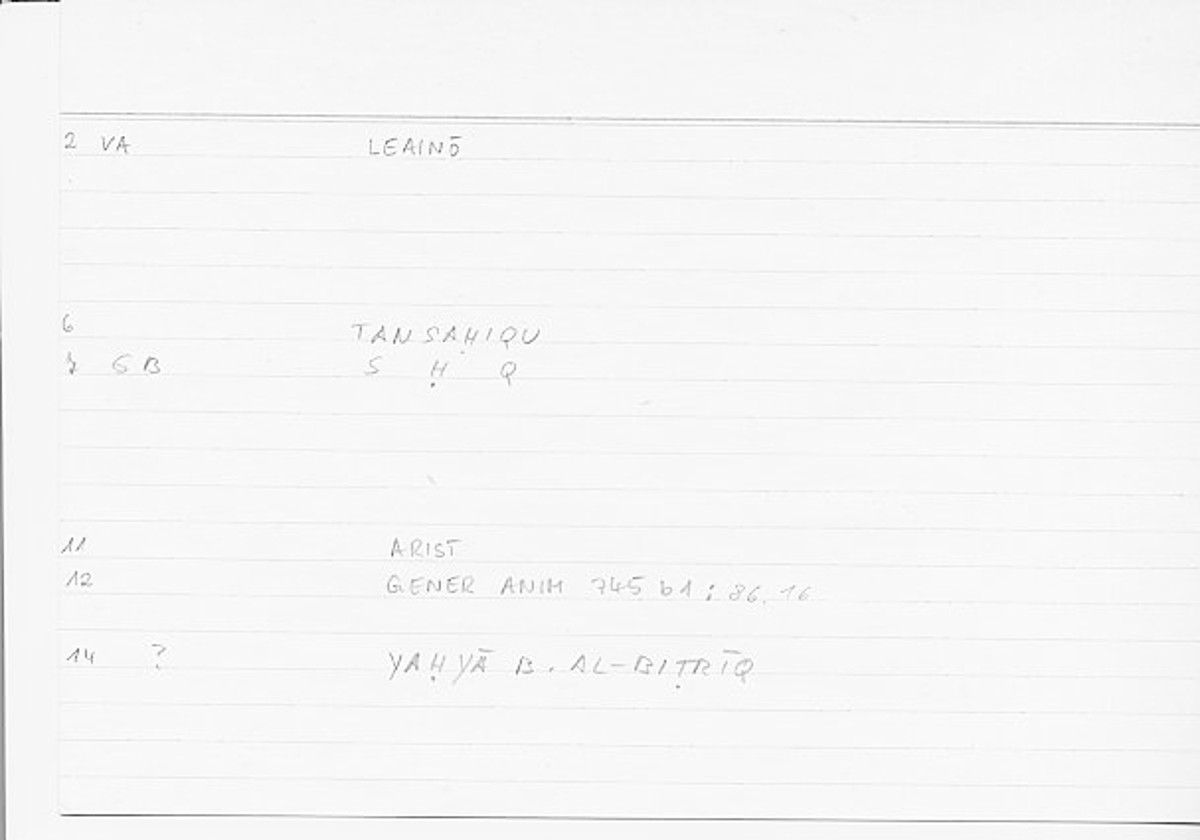 2 VA LEAINŌ
6 TANSAḤIQU
7 SB S Ḥ Q
11 ARIST
12 GENER ANIM 745 b1 ; 86, 16
14 ? YAḤYĀ B. AL-BIṬRĪQ